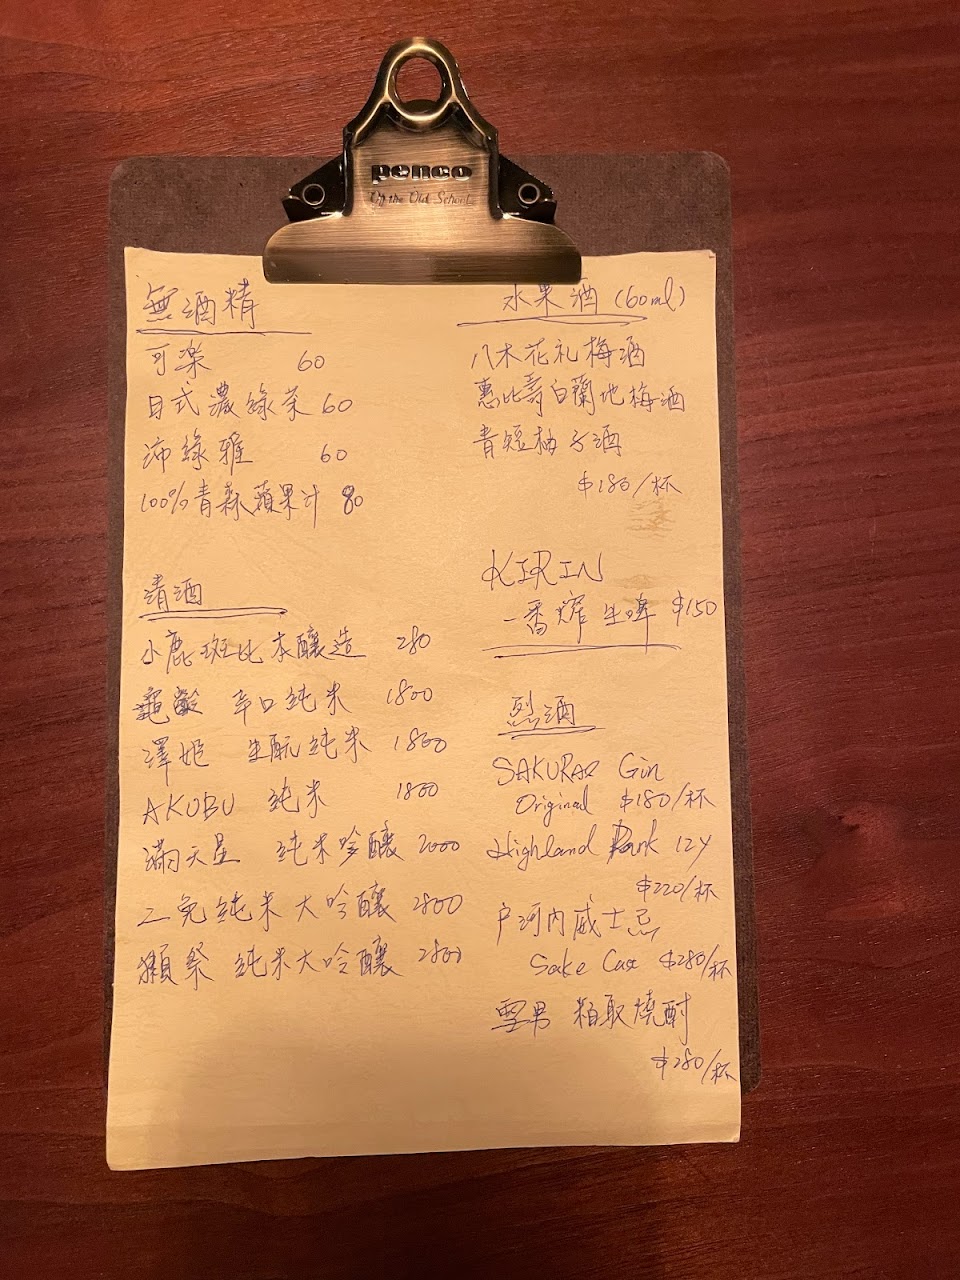 penco
Off the Old School
無酒精
可楽 60
日式濃綠茶 60
沛綠雅 60
100%青森蘋果汁 80
清酒
小鹿斑比本釀造 280
龜齡 辛口純米 1800
澤姫 生酛純米 1800
AKUBU 純米 1800
滿天星 純米吟釀 2000
二兔純米大吟釀 2800
獺祭 純米大吟釀 2800
水果酒 (60ml)
八木花札梅酒
惠比壽白蘭地梅酒
青短柚子酒
$180/杯
KIRIN
一番搾生啤 $150
烈酒
SAKURAO Gin
Original $180/杯
Highland Park 12Y
$220/杯
戶河內威士忌
Sake Cask $280/杯
雪男 粕取燒酎
$280/杯